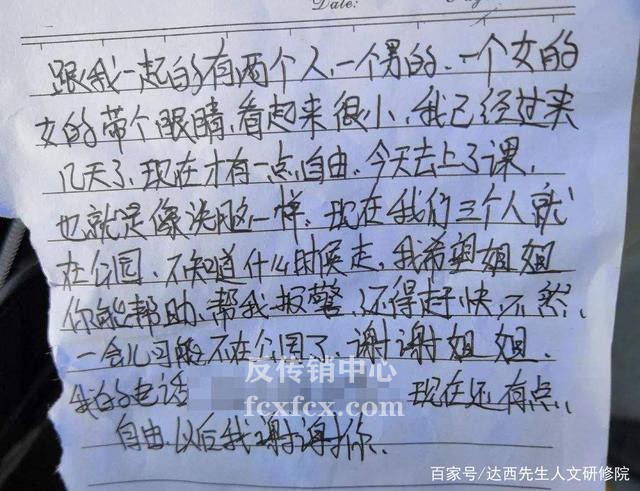 Date:
跟我一起的有两个人,一个男的、一个女的
女的带个眼睛,看起来很小,我已经过来
几天了,现在才有一点自由,今天去上了课,
也就是像洗脑一样,现在我们三个人就
在公园,不知道什么时候走,我希望姐姐
你能帮助、帮我报警,还得赶快,不然,
一会儿可能不在公园了,谢谢姐姐、
我的电话 现在还有点,
自由,以后我谢谢你、
反传销中心
fcxfcx.com
百家号/达西先生人文研修院